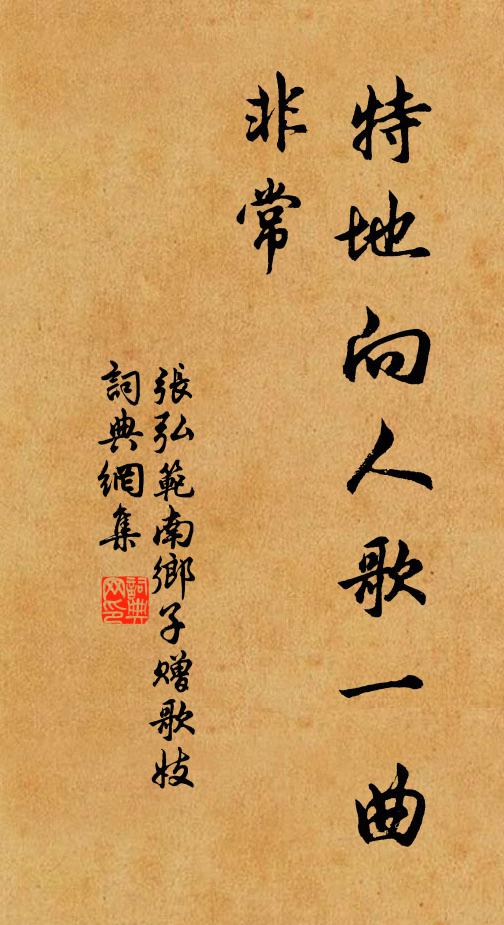 特地向人歌一曲
非常
張弘範南鄉子贈歌妓
詞典網集
詞典網印